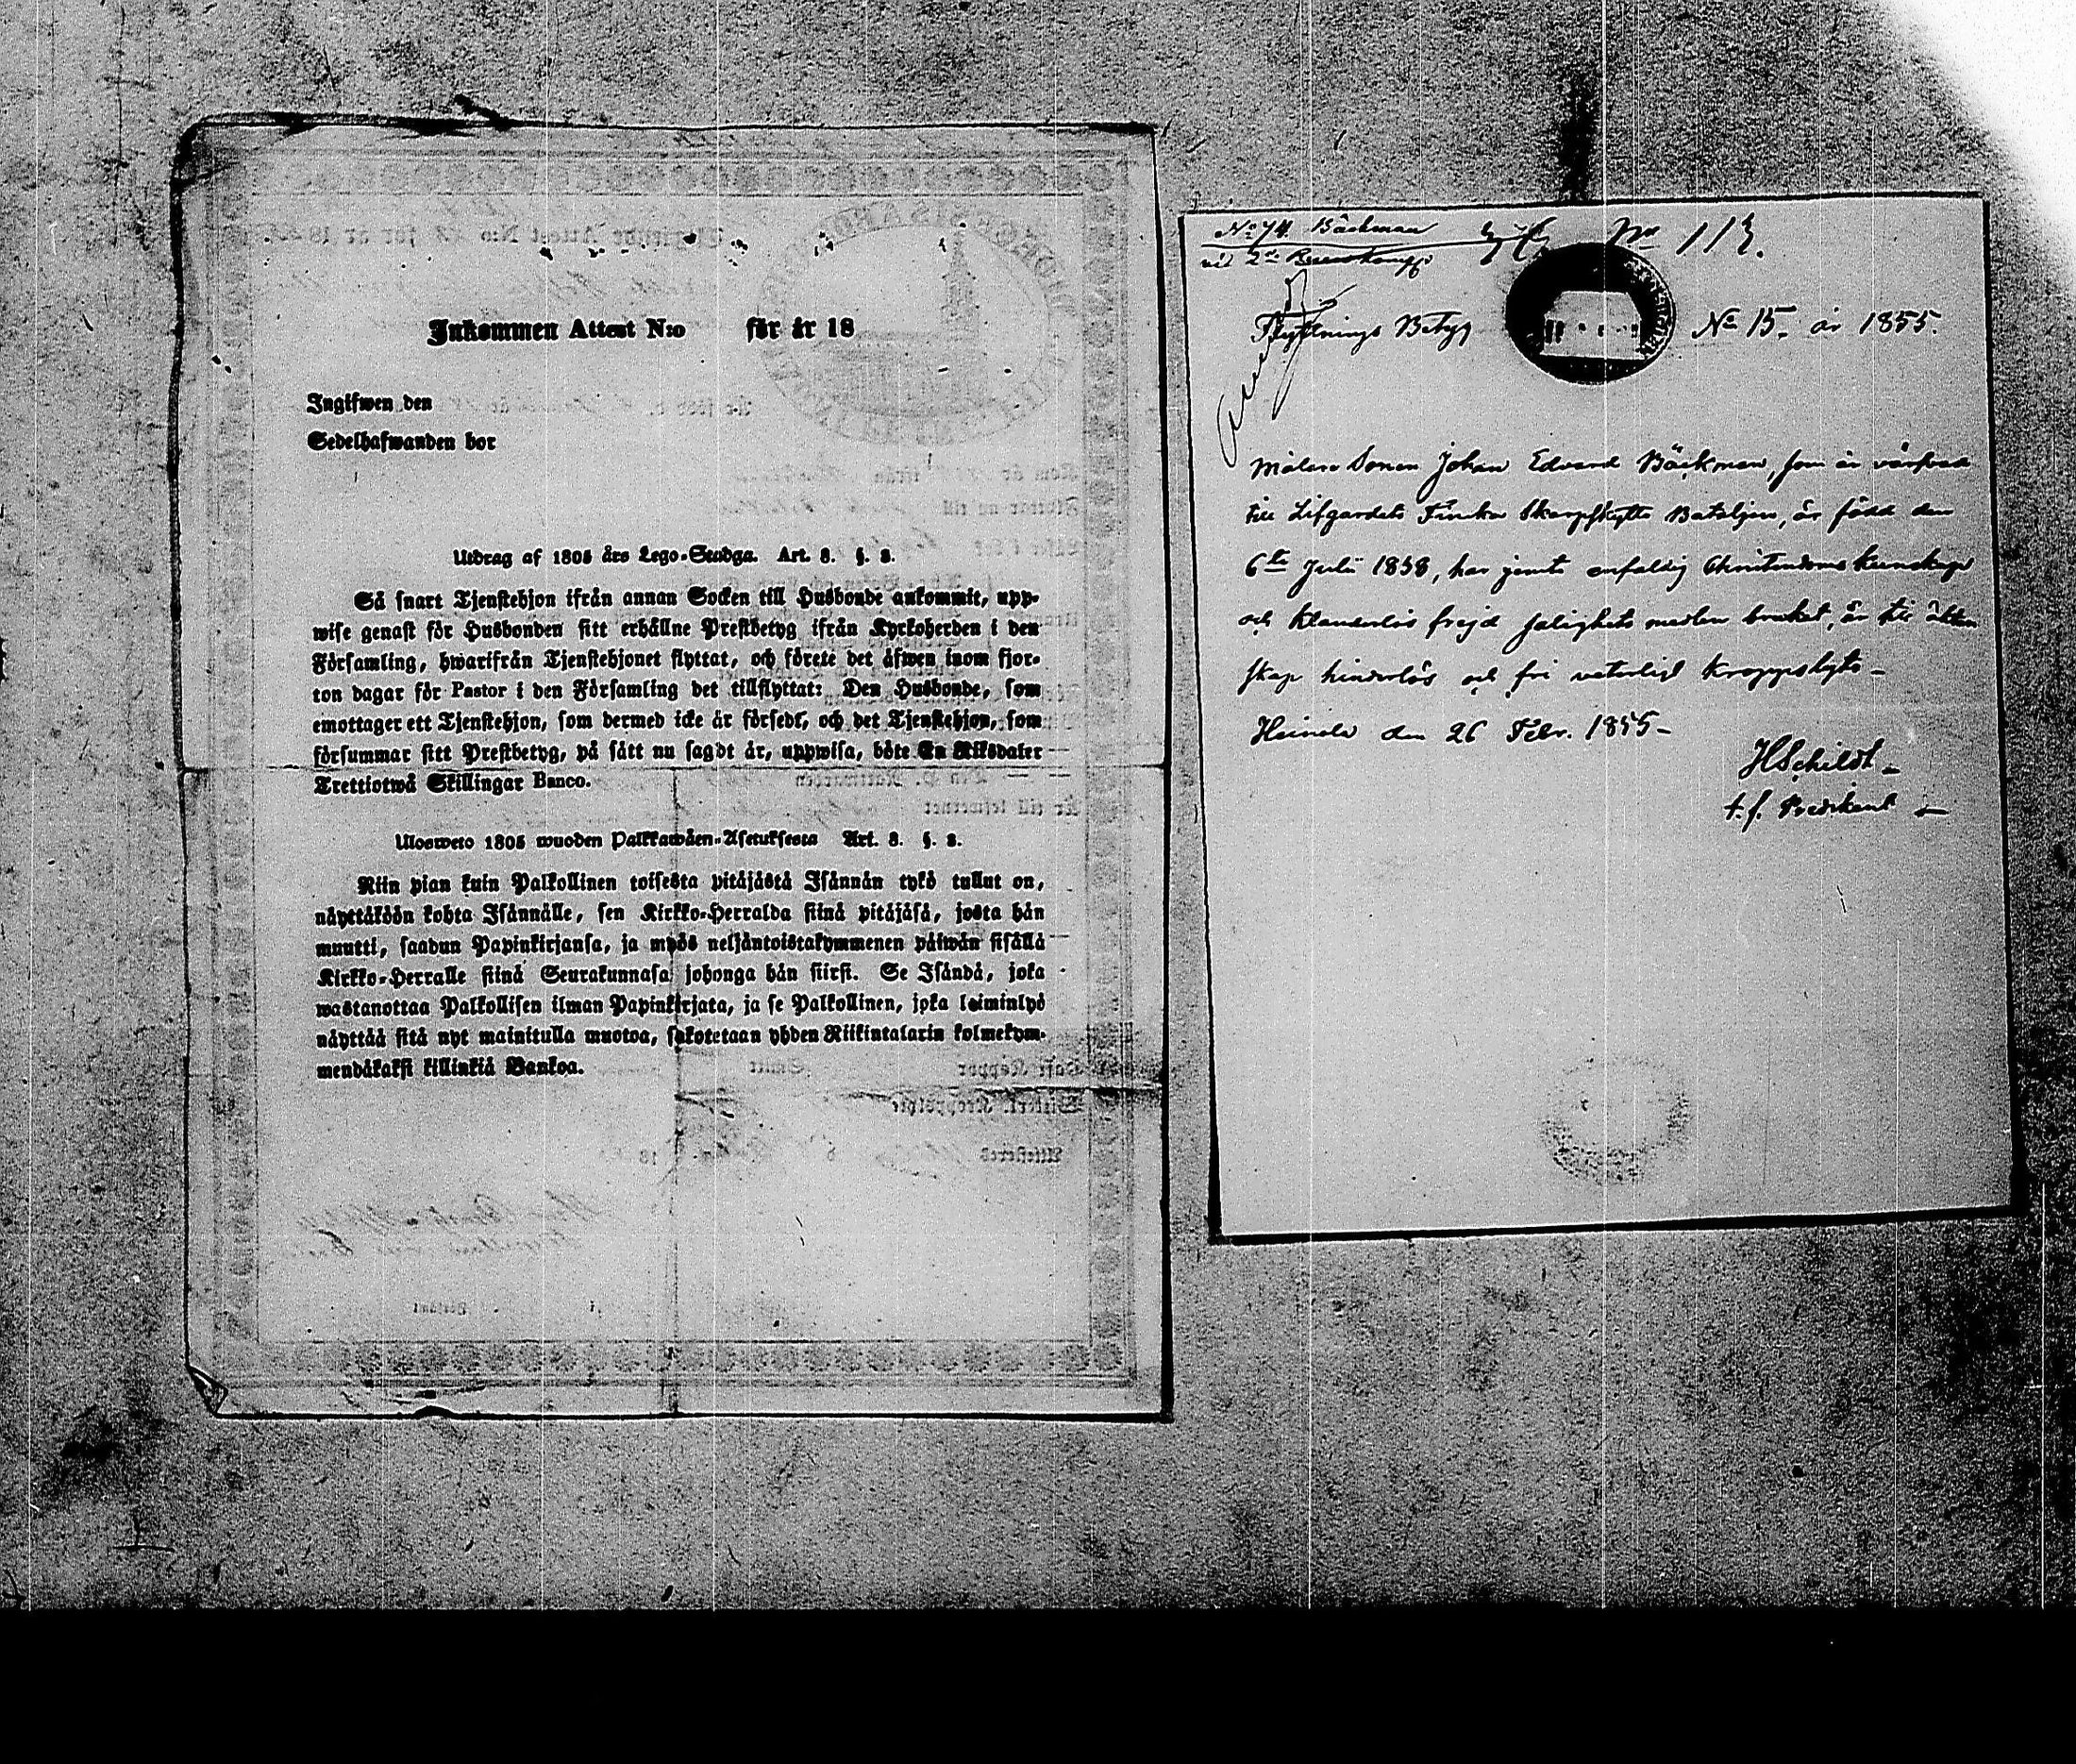 Inkommen Attest N:o för år 18
Ingifwen den
Sedelhafwanden bor
Utdrag af 1805 års Lego-Stadga. Art. 8. §. 2.
Så snart Tjenstehjon ifrån annan Socken till Husbonde ankommit, upp-
wise genast för Husbonden sitt erhållne Prestbetyg ifrån Kyrkoherden i den
Församling, hwarifrån Tjenstehjonet flyttat, och förete det äfwen inom fjor-
ton dagar för Pastor i den Församling det tillflyttat: Den Husbonde, som
emottager ett Tjenstehjon, som dermed icke är försedt, och det Tjenstehjon, som
försummar sitt Prestbetyg, på sätt nu sagdt är, uppwisa, böte En Riksdaler
Trettiotwå Skillingar Banco.
Ulosweto 1805 wuoden Palkkawäen-Asetuksesta Art. 8. §. 2.
Niin pian kuin Palkollinen toisesta pitäjästä Isännän tykö tullut on,
näyttäköön kohta Isännälle, sen Kirkko-Herralda siinä pitäjäsä, josta hän
muutti, saadun Papinkirjansa, ja myös neljäntoistakymmenen päiwän sisällä
Kirkko-Herralle siinä Seurakunnasa johonga hän siirsi. Se Isändä, joka
wastanottaa Palkollisen ilman Papinkirjata, ja se Palkollinen, joka laiminlyö
näyttää sitä nyt mainitulla muotoa, sakotetaan yhden Riikintalarin kolmekym-
mendäkaksi killinkiä Bankoa.
No 74. Bäckman
vid 2dra
No 113.
Flyttnings Betyg No 15. år 1855.
Målare Sonen Johan Edvard Bäckman, som är värfvad
till Lifgardets Finska Skarpskytte Bataljon, är född den
6te Julii 1838, har jemte enfaldig Christendoms kunskap
och klanderlös frejd salighets medlen brukat, är till äkten
skap hinderlös och fri veterligt kroppslyte -
Heinola den 26 Febr. 1855 -
HSchildt -
t.f. Predikant -